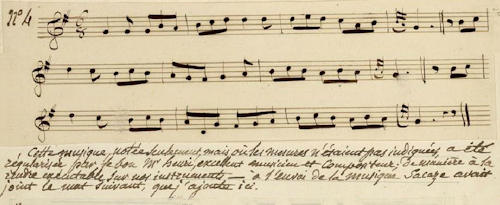 N° 4
Cette musique, notée seulement, mais où les mesures n'étaient pas indiquées, a été
régularisée par le bon Mr henri, excellent musicien et Compositeur, de manière à la
rendre exécutable sur nos instruments — à l'envoi de la musique Sacaze avait
joint le mot suivant, que j'ajoute ici.